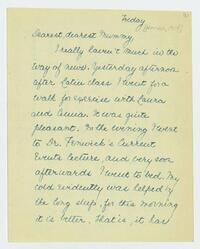 Friday
Dearest, dearest Mummy,
I really haven't much in the
way of news. Yesterday afternoon
after Latin class I went for a
walk for exercise with Laura
and Anna. It was quite
pleasant. In the evening I went
to Dr. Fenwick's Current
Events lecture, and very soon
afterwards I went to bed. My
cold evidently was helped by
the long sleep, for this morning
it is better. That is, it has